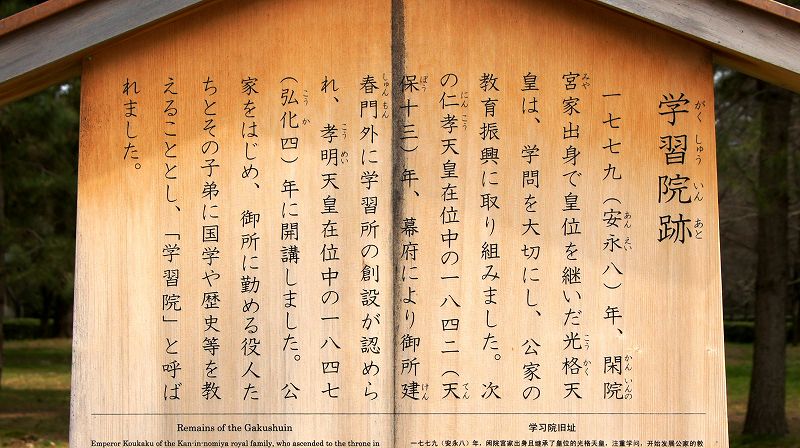 学習院跡
がくしゅういんあと
一七七九（安永八）年、閑院
あんえい
かんいんの
宮家出身で皇位を継いだ光格天
みや
こうかく
皇は、学問を大切にし、公家の
教育振興に取り組みました。次
の仁孝天皇在位中の一八四二（天
にんこう
てん
保十三）年、幕府により御所建
ぽう
けん
春門外に学習所の創設が認めら
しゅんもん
れ、孝明天皇在位中の一八四七
こうめい
（弘化四）年に開講しました。公
こうか
家をはじめ、御所に勤める役人た
ちとその子弟に国学や歴史等を教
えることとし、「学習院」と呼ば
れました。
Remains of the Gakushuin
Emperor Koukaku of the Kan-in-nomiya royal family, who ascended to the throne in
学习院旧址
一七七九（安永八）年，闲院宫家出身且继承了皇位的光格天皇，注重学问，开始发展公家的教